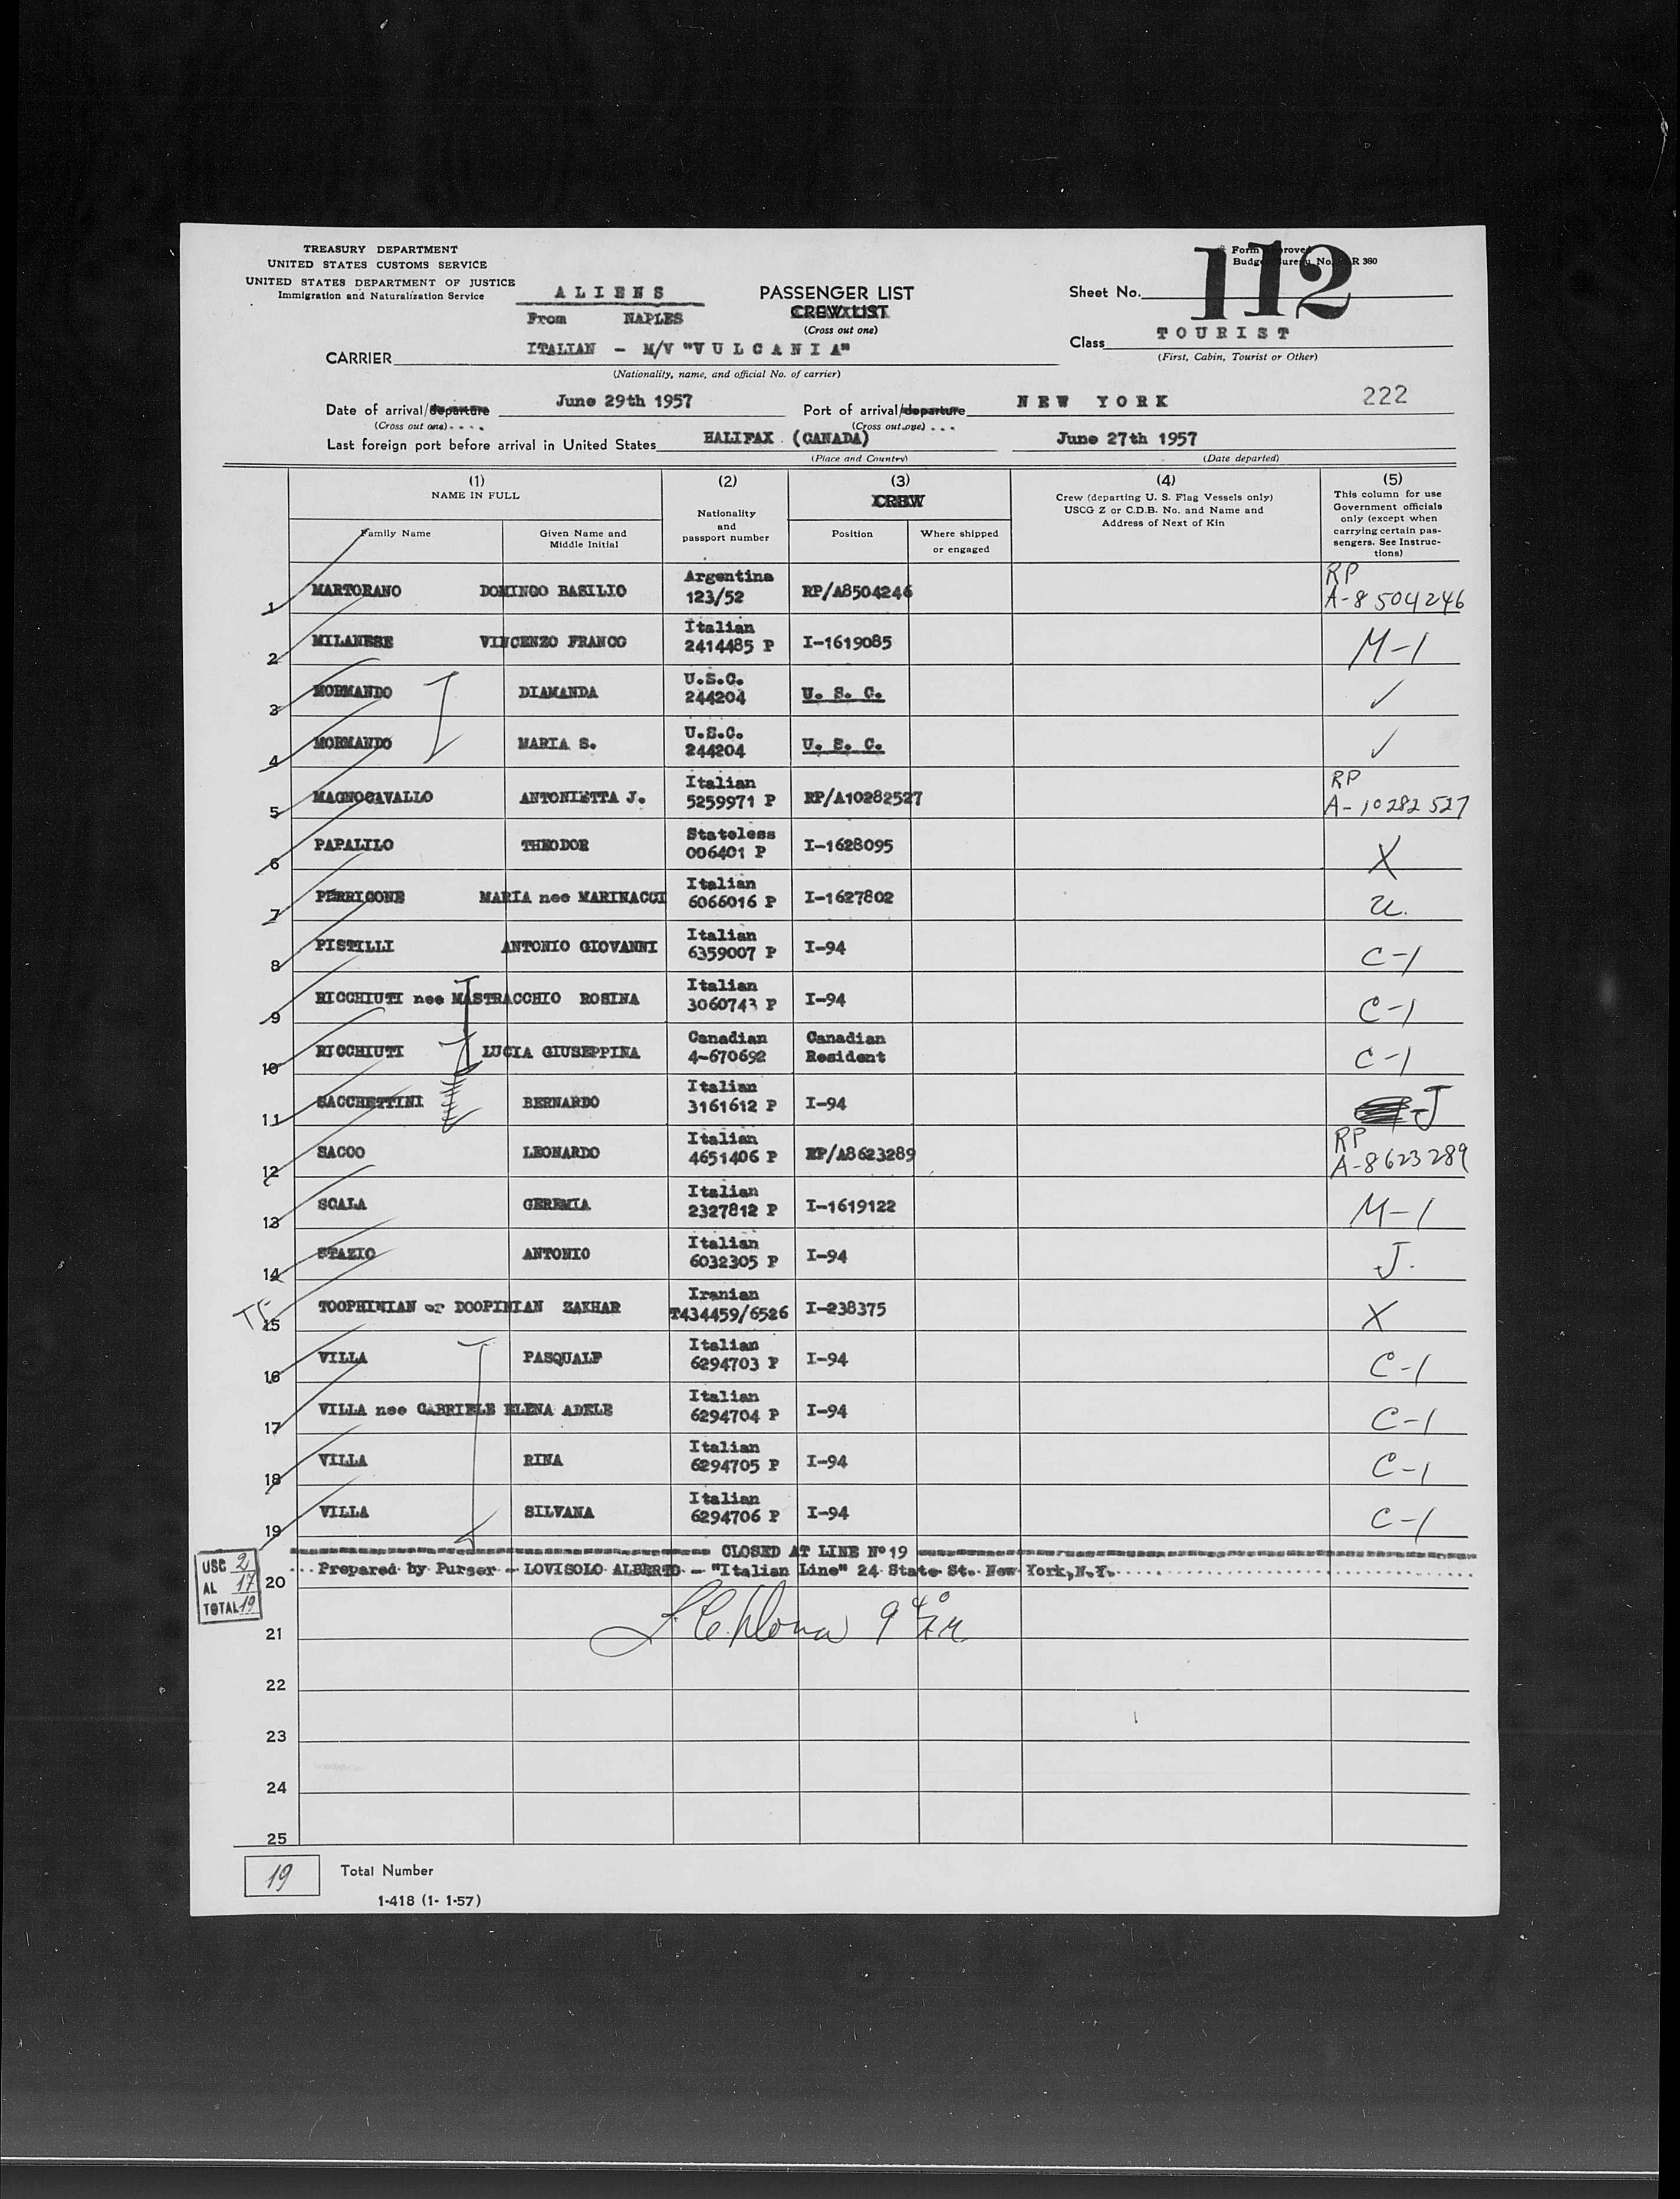 TREASURY DEPARTMENT
UNITED STATES CUSTOMS SERVICE
UNITED STATES DEPARTMENT OF JUSTICE
Immigration and Naturalization Service
A L I E N S
From NAPLES
PASSENGER LIST
CREW LIST
(Cross out one)
Form Approved
Budget Bureau No. R 380
Sheet No. 112
Class TOURIST
(First, Cabin, Tourist or Other)
CARRIER ITALIAN - M/V "V U L C A N I A"
(Nationality, name, and official No. of carrier)
Date of arrival/departure June 29th 1957 Port of arrival/departure NEW YORK 222
(Cross out one) (Cross out one)
Last foreign port before arrival in United States HALIFAX (CANADA) June 27th 1957
(Place and Country) (Date departed)
(1) (2) (3) (4) (5)
NAME IN FULL
Family Name Given Name and Middle Initial
Nationality and passport number
CREW
Position Where shipped or engaged
Crew (departing U. S. Flag Vessels only) USCG Z or C.D.B. No. and Name and Address of Next of Kin
This column for use Government officials only (except when carrying certain passengers. See Instructions)
1 MARTORANO DOMINGO BASILIO Argentina 123/52 RP/A8504246 RP A-8504246
2 MILANESE VINCENZO FRANCO Italian 2414485 P I-1619085 M-1
3 MORMANDO DIAMANDA U.S.C. 244204 U. S. C. ✓
4 MORMANDO MARIA S. U.S.C. 244204 U. S. C. ✓
5 MAGNOCAVALLO ANTONIETTA J. Italian 5259971 P RP/A10282527 RP A-10282527
6 PAPALILO THEODOR Stateless 006401 P I-1628095 X
7 PERRICONE MARIA nee MARINACCI Italian 6066016 P I-1627802
8 PISTILLI ANTONIO GIOVANNI Italian 6359007 P I-94 C-1
9 RICCHIUTI nee MASTRACCHIO ROSINA Italian 3060743 P I-94 C-1
10 RICCHIUTI LUCIA GIUSEPPINA Canadian 4-670692 Canadian Resident C-1
11 SACCHETTINI BERNARDO Italian 3161612 P I-94 J
12 SACCO LEONARDO Italian 4651406 P RP/A8623289 RP A-8623289
13 SCALA GEREMIA Italian 2327812 P I-1619122 M-1
14 STAZIO ANTONIO Italian 6032305 P I-94 J.
15 TOOPHINIAN or DOOPINIAN ZAKHAR Iranian T434459/6526 I-238375 X
16 VILLA PASQUALE Italian 6294703 P I-94 C-1
17 VILLA nee GABRIELE ELENA ADELE Italian 6294704 P I-94 C-1
18 VILLA RINA Italian 6294705 P I-94 C-1
19 VILLA SILVANA Italian 6294706 P I-94 C-1
CLOSED AT LINE N°19
USC 2
AL 17
TOTAL 19
20 Prepared by Purser - LOVISOLO ALBERTO - "Italian Line" 24 State St. New York, N.Y.
21
22
23
24
25
19 Total Number
1-418 (1- 1-57)